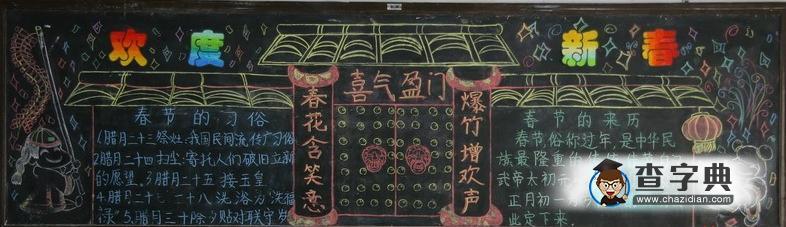 欢度
新春
喜气盈门
春花含笑意
爆竹增欢声
春节的习俗
1.腊月二十三祭灶,我国民间流传广习俗
2腊月二十四扫尘:寄托人们破旧立新
的愿望。3腊月二十五 接玉皇
4.腊月二十 二十八洗浴为"洗福
禄"5.腊月三十除夕贴对联守岁
春节的来历
春节,俗称过年,是中华民
族最隆重的传
武帝太初元
正月初一为
此定下来.
查字典
www.chazidian.com